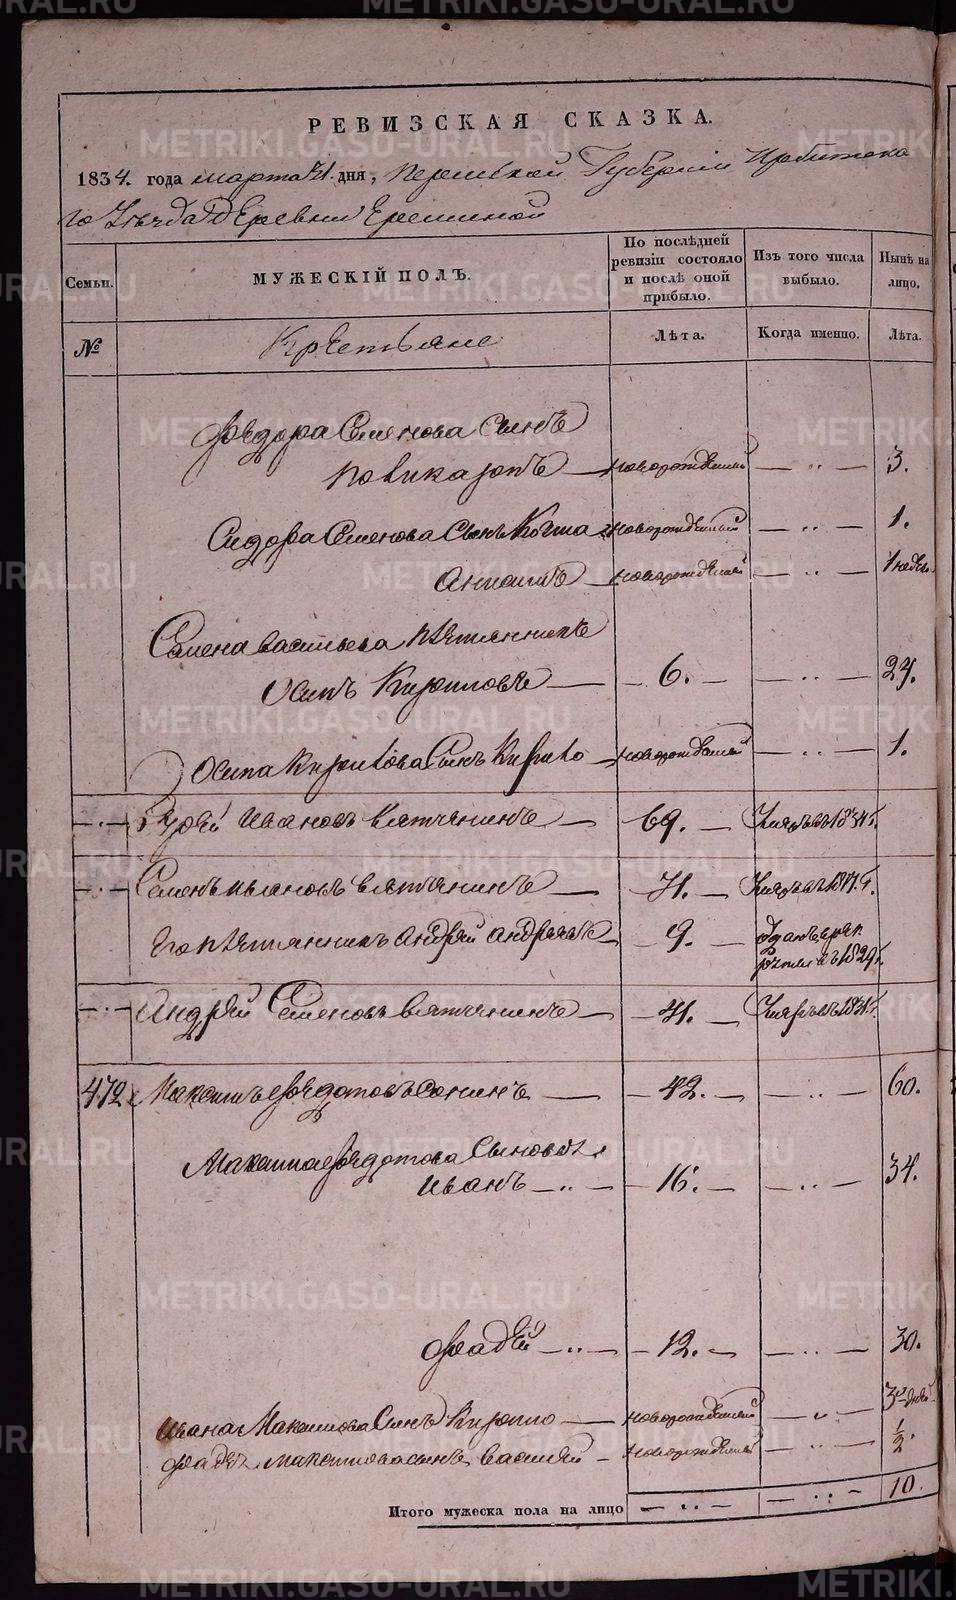 РЕВИЗСКАЯ СКАЗКА.
1834. года марта 31. дня, Пермской Губернии Ирбитска
го Уезда Деревни Ерешиной
Семьи.
МУЖЕСКІЙ ПОЛЪ.
По послѣдней ревизіи состояло и послѣ оной прибыло.
Изъ того числа выбыло.
Нынѣ на лицо.
№
Крестьяне
Лѣта.
Когда именно.
Лѣта.
Федора Семенова Сынъ
новорожденный — „ — 3.
Сидора Семенова Сынъ новорожденный — „ — 1.
новорожденный — „ — 1 недел.
Семена Васильева племянникъ
Осипъ Кириловъ — 6. — „ — 24.
Осипа Кирилова Сынъ Кирило новорожденный — „ — 1.
Иванов Вятчанинъ — 69. —
Семенъ Иванов Вятчанинъ — 71. —
Его племянникъ Андрей Андреевъ — 9. — отданъ в рек
руты въ 1829 г.
Андрей Семеновъ Вятчанинъ — 41. —
472 Максимъ Федотовъ Сонинъ — 42. — „ — 60.
Максима Федотова Сыновья
Иванъ — „ — 16. — „ — 34.
Фадей — „ — 12. — „ — 30.
Ивана Максимова Сынъ Кирило — новорожденный — „ — 3 дней
Фадея Максимова сынъ Василий — новорожденный — „ — 1/2.
Итого мужеска пола на лицо — „ — — „ — 10.
METRIKI.GASO-URAL.RU